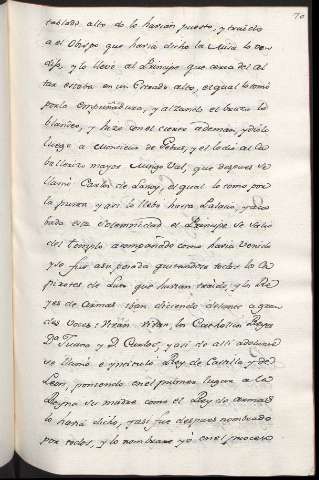 70
tablado alto do lo havian puesto, y traido
a el Obispo que havia dicho la Misa lo ven
dijo, y lo llevó al Principe que cerca del al
tar estaba en un Estrado alto, el qual lo tomó
por la empuñadura, y alzando el brazo lo
blandeó, y hizo con el cierto ademan, y diólo
luego a Monsieur de                y el lo dió al Ca
ballerizo mayor Mingo Val, que despues se
llamó Carlos de Lanoy, el qual lo tomó por
la punta, y asi lo llebó hasta Palacio, y aca
bada esta solemnidad el Principe se salió
del Templo acompañado como havia venido
y se fué a su posada quitandose todos los Ca
pirotes de Luto que havian traido, y los Re
yes de Armas iban diciendo delante a gran
des voces: Vivan Vivan los Catholicos Reyes
Dª Juana y D. Carlos, y asi de alli adelante
se llamó e yntituló Rey de Castilla, y de
Leon, poniendo en el primer lugar a la
Reyna su madre como el Rey de armas
lo havia dicho, y asi fue despues nombrado
por todos, y lo nombrare yó en el proceso